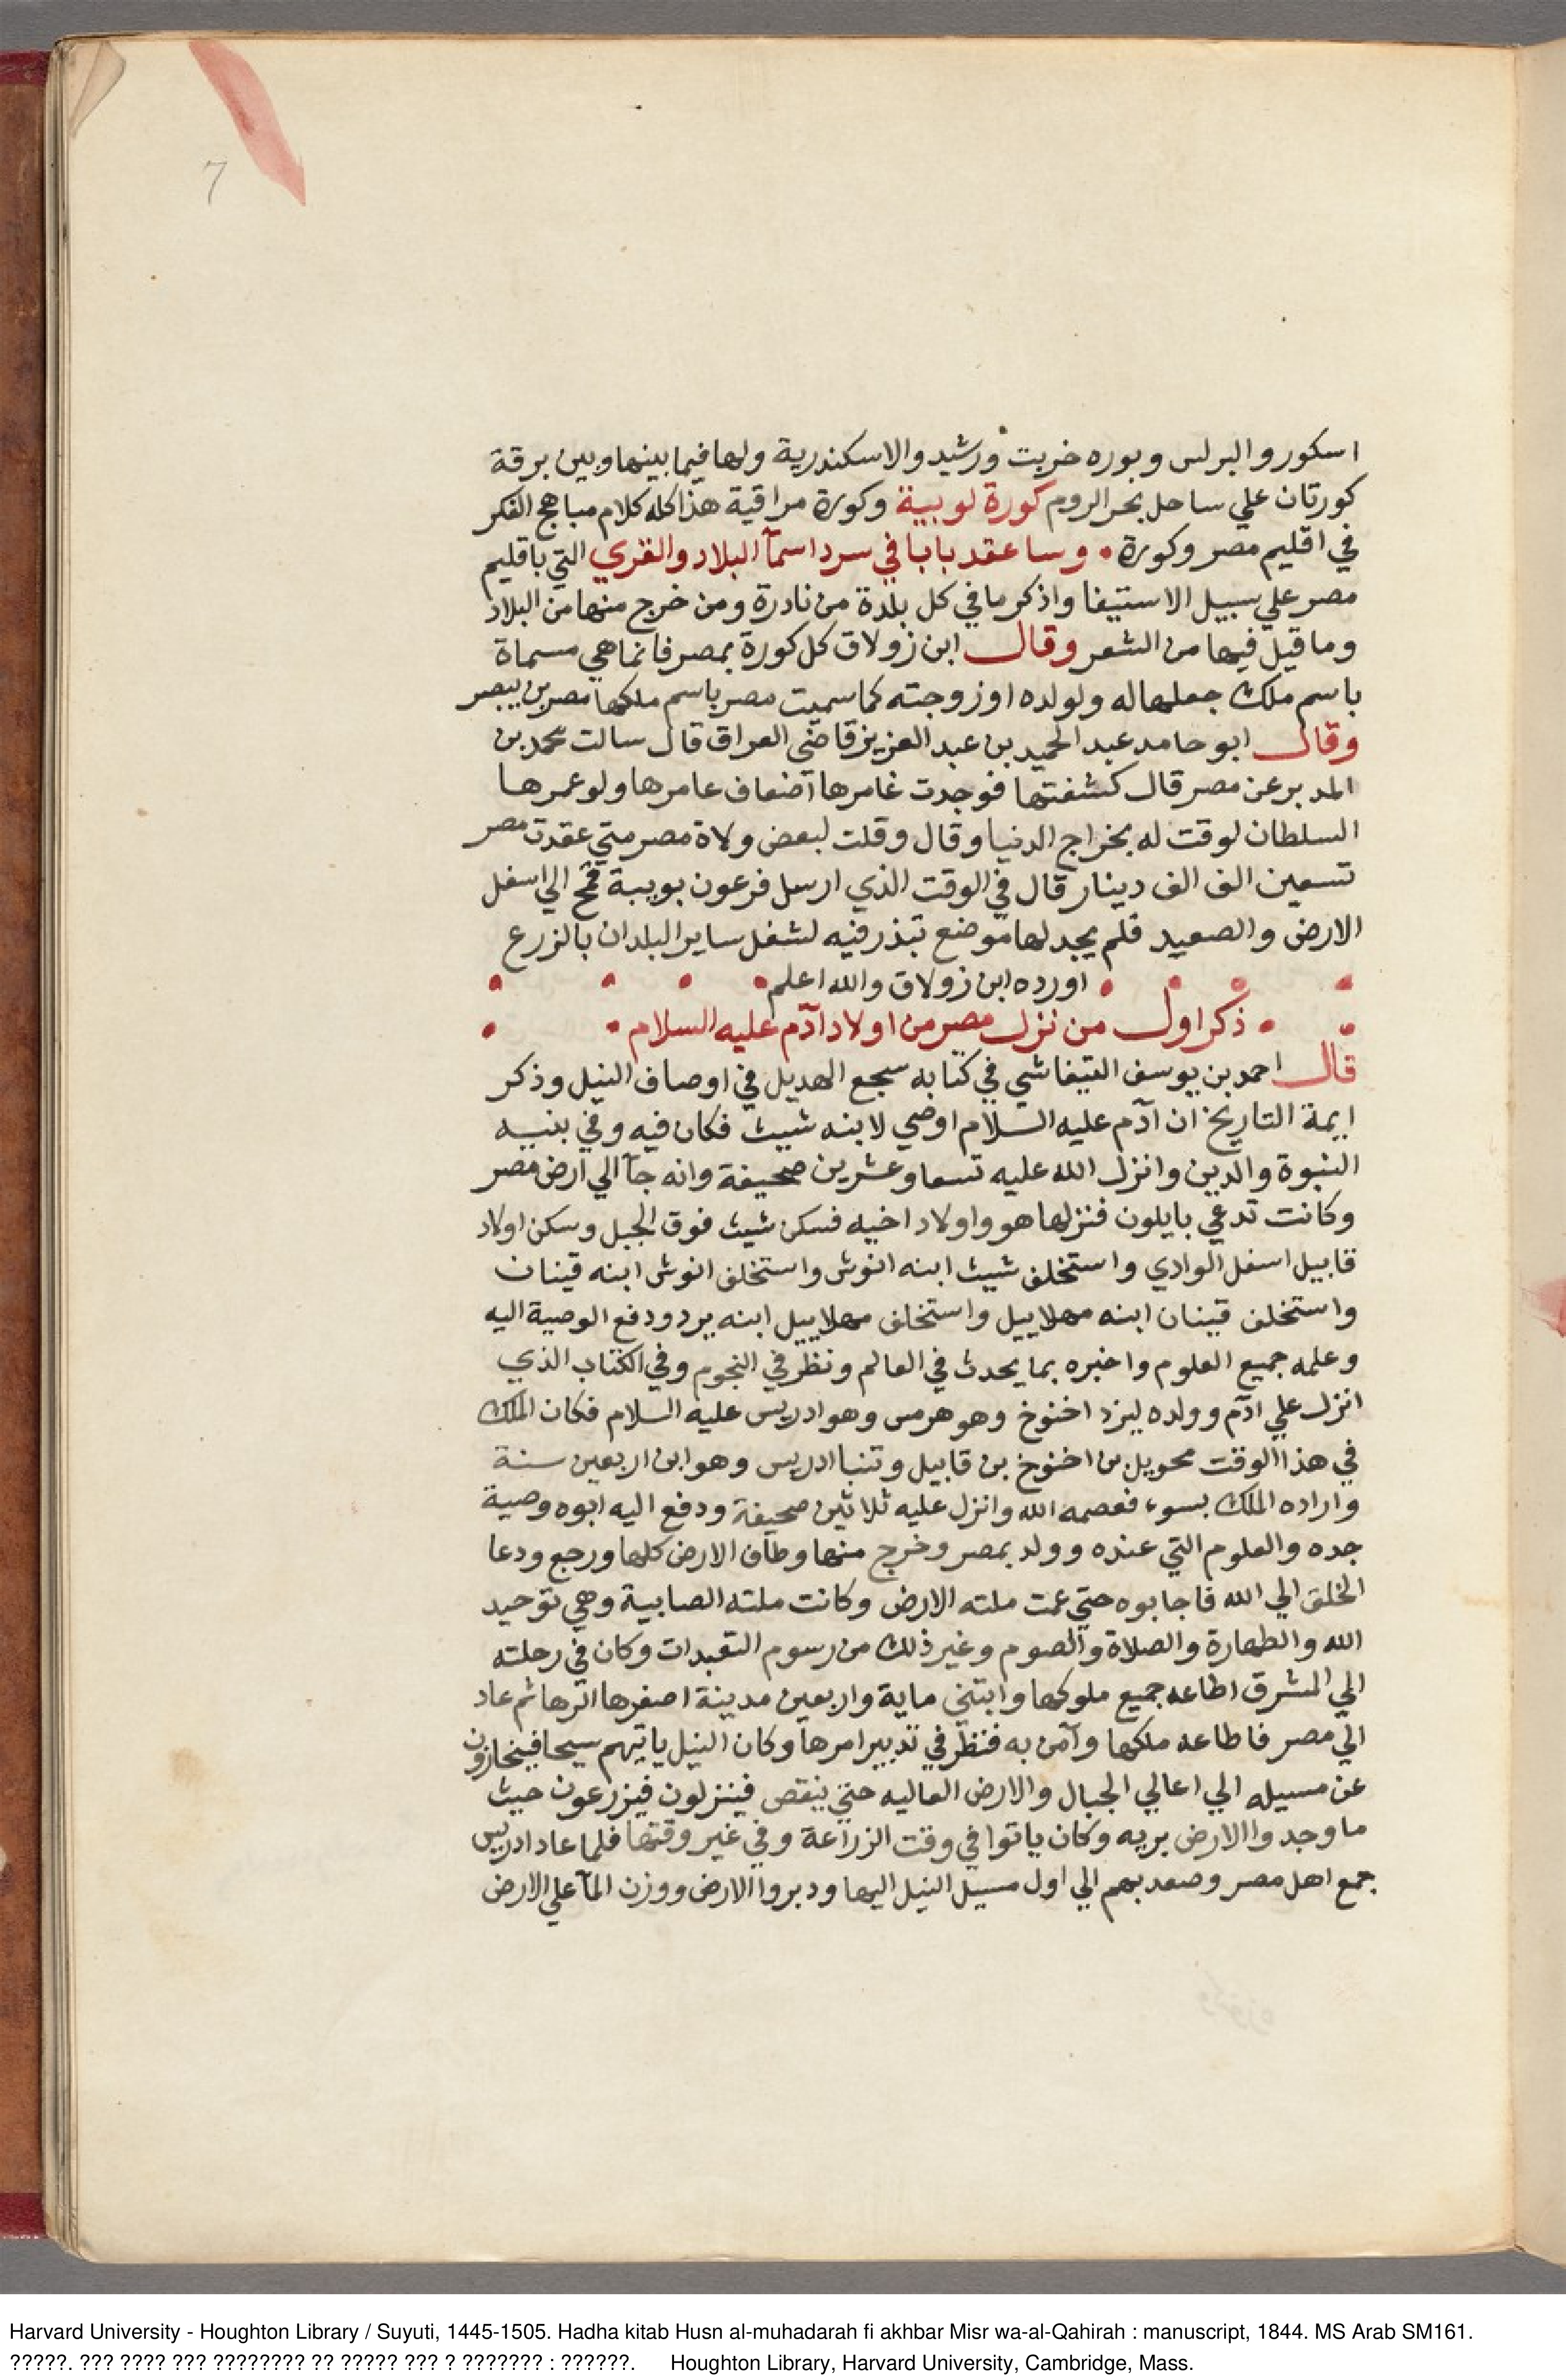 7
اسكور والبرلس وبوره خربت ورشيد والاسكندرية ولها فيما بينها وبين برقة
كورتان علي ساحل بحر الروم كورة لوبية وكورة مراقية هذا كله كلام مباهج الفكر
في اقليم مصر وكورة وساعقد بابا في سرد اسمآ البلاد والقري التي باقليم
مصر علي سبيل الاستيفا واذكر ما في كل بلدة من نادرة ومن خرج منها من البلاد
وما قيل فيها من الشعر وقال ابن زولاق كل كورة بمصر فانما هي مسماة
باسم ملك جعلها له ولولده او زوجته كما سميت مصر باسم ملكها مصر بن بيصر
وقال ابو حامد عبد الحميد بن عبد العزيز قاضي العراق قال سالت محمد بن
المدبر عن مصر قال كشفتها فوجدت غامرها اضعاف عامرها ولو عمرها
السلطان لوقت له بخراج الدنيا وقال وقلت لبعض ولاة مصر متي عقدت مصر
تسعين الف الف دينار قال في الوقت الذي ارسل فرعون بويبة قمح الي اسفل
الارض والصعيد فلم يجد لها موضع تبذر فيه لشغل ساير البلدان بالزرع
اورده ابن زولاق والله اعلم
ذكر اول من نزل مصر من اولاد آدم عليه السلام
قال احمد بن يوسف التيفاشي في كتابه سجع الهديل في اوصاف النيل وذكر
ايمة التاريخ ان آدم عليه السلام اوصي لابنه شيث فكان فيه وفي بنيه
النبوة والدين وانزل الله عليه تسعا وعشرين صحيفة وانه جآ الي ارض مصر
وكانت تدعي بايلون فنزلها هو واولاد اخيه فسكن شيث فوق الجبل وسكن اولاد
قابيل اسفل الوادي واستخلف شيث ابنه انوش واستخلف انوش ابنه قينان
واستخلف قينان ابنه مهلاييل واستخلف مهلاييل ابنه يرد ودفع الوصية اليه
وعلمه جميع العلوم واخبره بما يحدث في العالم ونظر في النجوم وفي الكتاب الذي
انزل علي ادم وولده ليرد اخنوخ وهو هرمس وهو ادريس عليه السلام فكان الملك
في هذا الوقت محويل بن اخنوخ بن قابيل وتنبا ادريس وهو ابن اربعين سنة
واراده الملك بسوء فعصمه الله وانزل عليه ثلاثين صحيفة ودفع اليه ابوه وصية
جده والعلوم التي عنده وولد بمصر وخرج منها وطاف الارض كلها ورجع ودعا
الخلق الي الله فاجابوه حتي عمت ملته الارض وكانت ملته الصابية وهي توحيد
الله والطهارة والصلاة والصوم وغير ذلك من رسوم التعبدات وكان في رحلته
الي المشرق اطاعه جميع ملوكها وابتني ماية واربعين مدينة اصغرها الرها ثم عاد
الي مصر فاطاعه ملكها وآمن به فنظر في تدبير امرها وكان النيل ياتيهم سيحا فينحازون
عن مسيله الي اعالي الجبال والارض العاليه حتي ينقص فينزلون فيزرعون حيث
ما وجدوا الارض بريه وكان ياتوا في وقت الزراعة وفي غير وقتها فلما عاد ادريس
جمع اهل مصر وصعد بهم الي اول مسيل النيل اليها ودبروا الارض ووزن المآ علي الارض
Harvard University - Houghton Library / Suyuti, 1445-1505. Hadha kitab Husn al-muhadarah fi akhbar Misr wa-al-Qahirah : manuscript, 1844. MS Arab SM161.
?????. ??? ???? ??? ???????? ?? ????? ??? ? ??????? : ??????. Houghton Library, Harvard University, Cambridge, Mass.